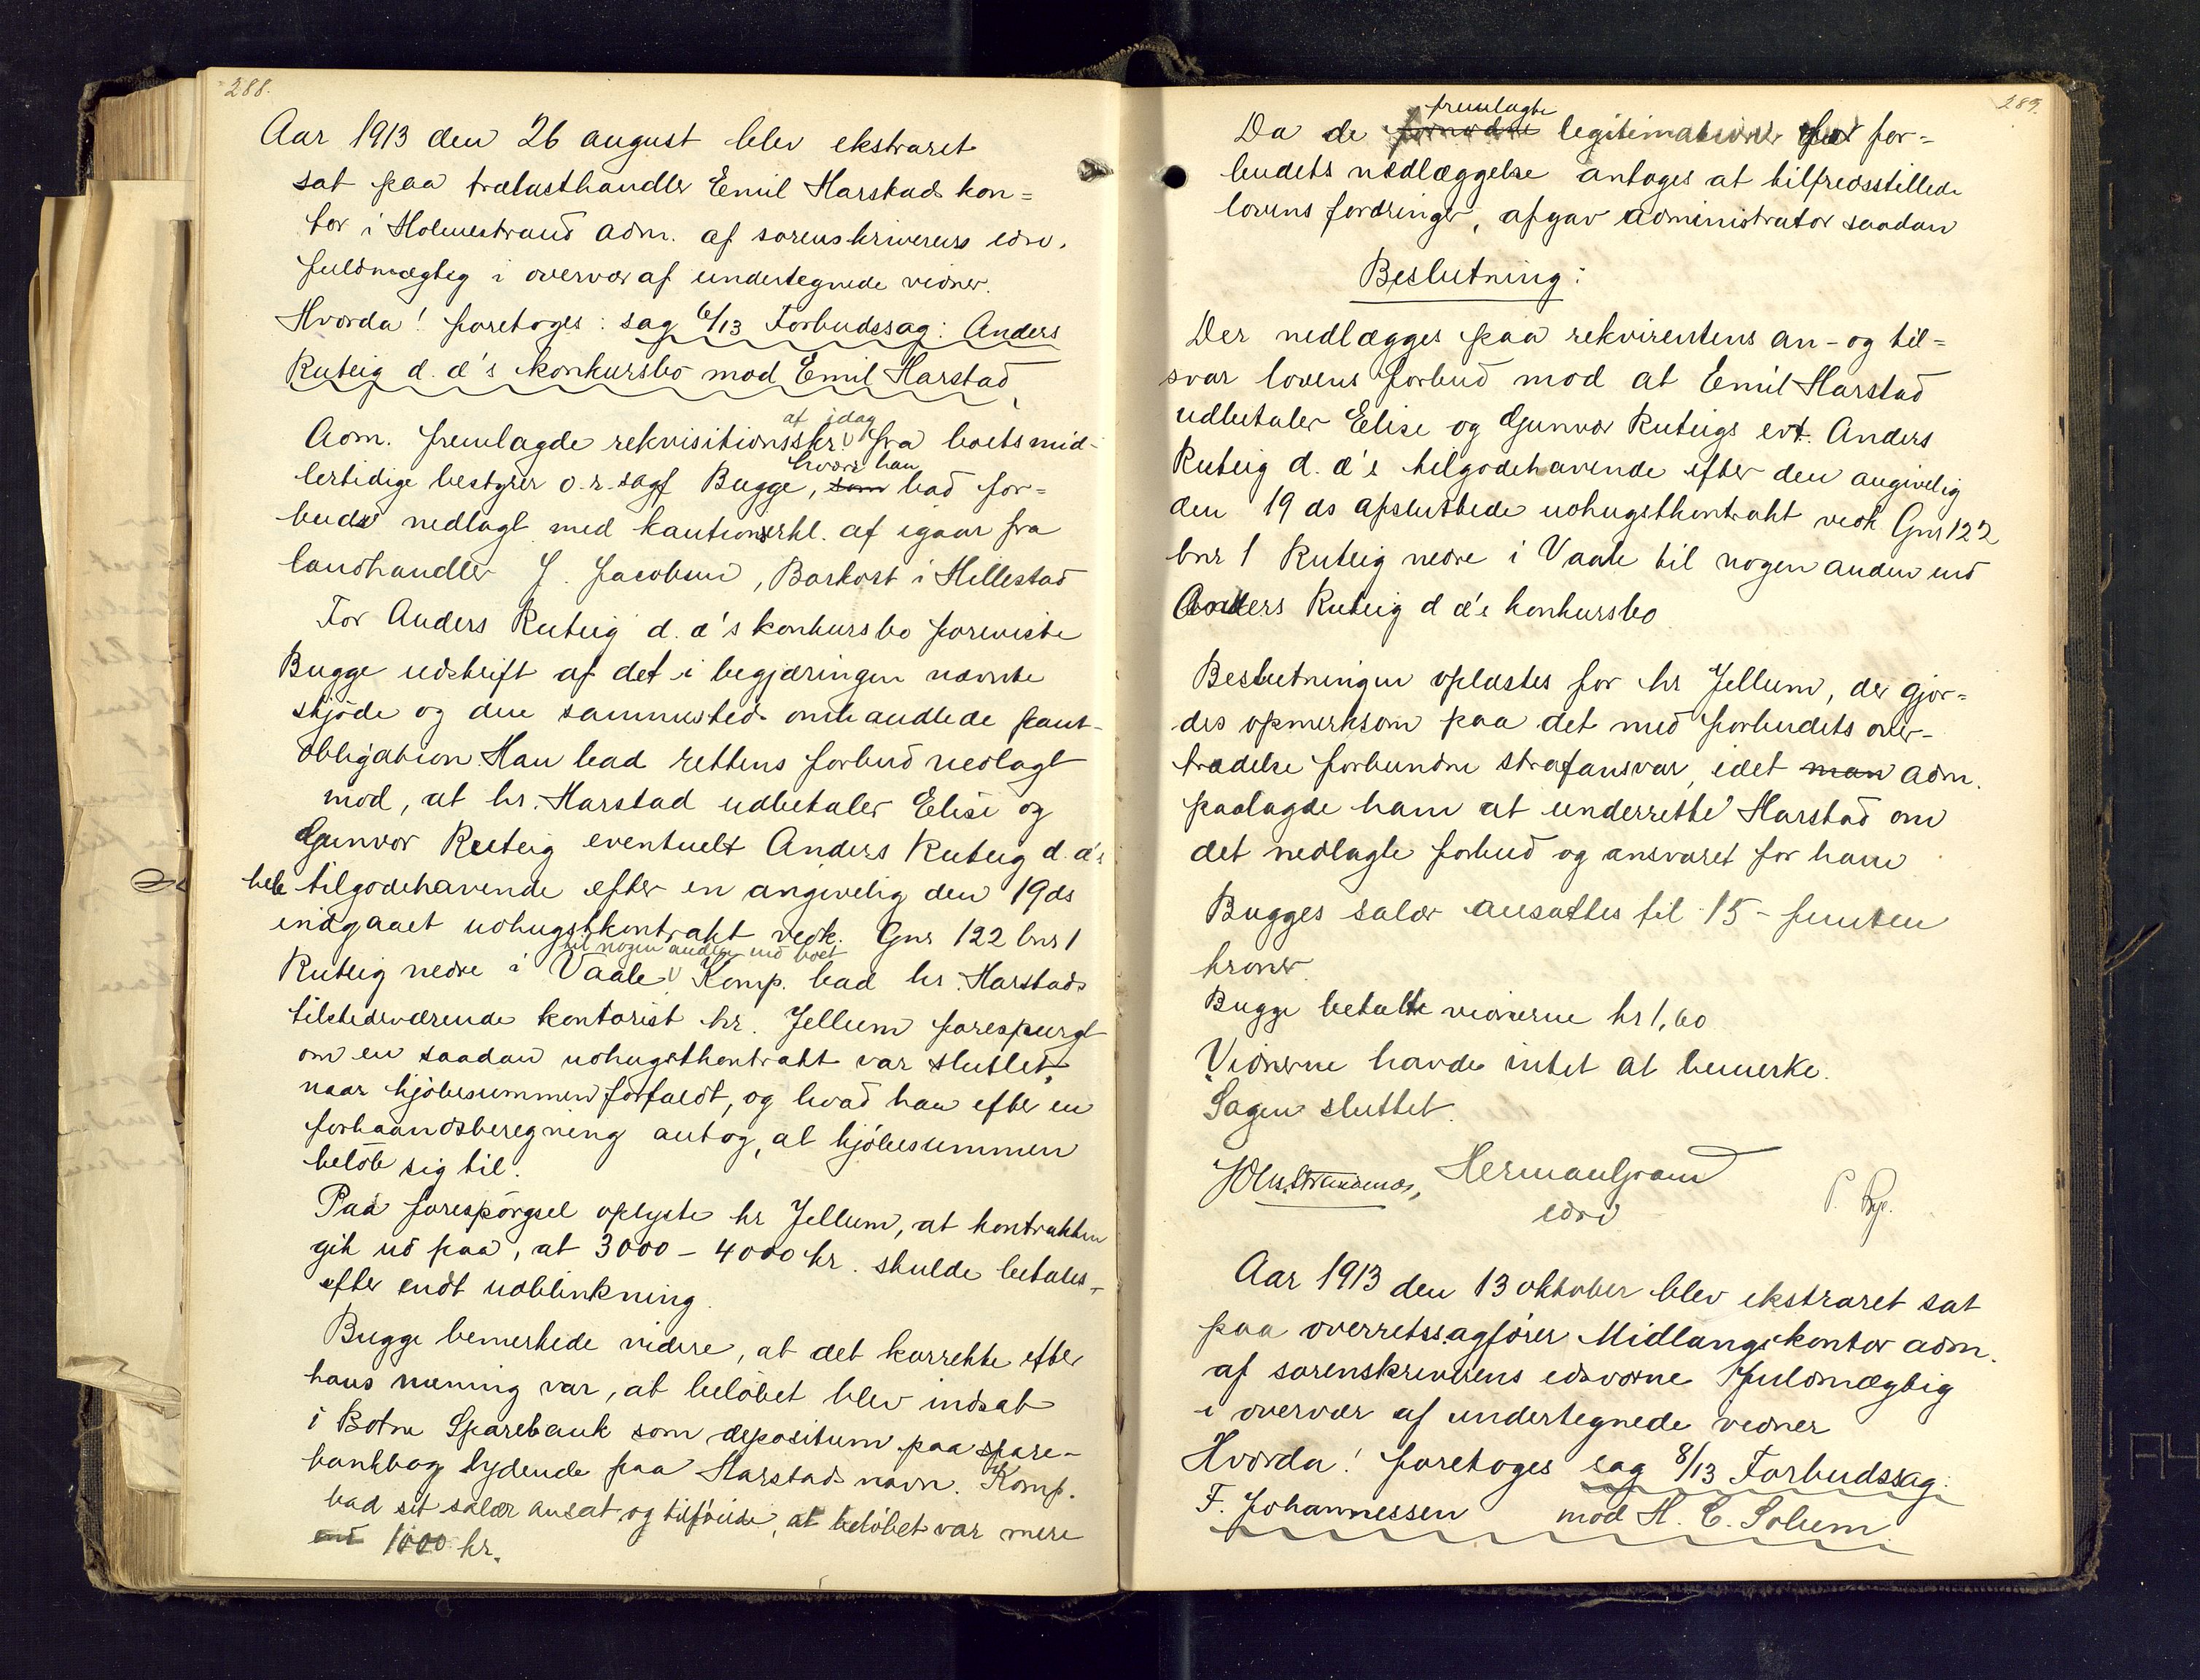 288.
Aar 1913 den 26 august blev ekstraret
sat paa trælasthandler Emil Harstads kon=
tor i Holmestrand adm. af sorenskriverens edsv.
fuldmægtig i overvær af undertegnede vidner.
Hvorda! foretoges: sag 6/13 Forbudssag: Anders
Ruteig d. æ's konkursbo mod Emil Harstad
af idag
Adm. fremlagde rekvisitionsskr. fra boets mid-
hvori han
lertidige bestyrer o.r.sagf Bugge, som bad for=
bud nedlagt med kautionserkl. af igaar fra
landhandler J. Jacobsen, Barkost i Hillestad
For Anders Ruteig d. æ's konkursbo foreviste
Bugge udskrift af det i begjæringen nævnte
skjøde og den sammesteds omhandlede pant-
obligation. Han bad rettens forbud nedlagt
mod, at hr. Harstad udbetaler Elise og
Gunvor Ruteig eventuelt Anders Ruteig d. æ's
hele tilgodehavende efter en angivelig den 19 ds
indgaaet udhugstkontrakt vedk. Gnr 122 bnr 1
til nogen anden end boet
Ruteig nedre i Vaale. Komp. bad hr. Harstads
tilstedeværende kontorist hr. Jellum forespurgt
om en saadan udhugstkontrakt var sluttet,
naar kjøbesummen forfaldt, og hvad han efter en
forhaandsberegning antog, at kjøbesummen
beløb sig til.
Paa forespørgsel oplyste hr Jellum, at kontrakten
gik ud paa, at 3000 – 4000 kr. skulde betales
efter endt udblinkning.
Bugge bemerkede videre, at det korrekte efter
hans mening var, at beløbet blev indsat
i Botne Sparebank som depositum paa spare-
bankbog lydende paa Harstads navn. Komp.
bad sit salær ansat og tilføiede, at beløbet var mere
end 1000 kr.
289.
fremlagte
Da de legitimationer for for=
budets nedlæggelse antages at tilfredsstillede
lovens fordringer, afgav administrator saadan
Beslutning:
Der nedlægges paa rekvirentens an- og til=
svar lovens forbud mod at Emil Harstad
udbetaler Elise og Gunvor Ruteigs evt. Anders
Ruteig d. æ's tilgodehavende efter den angivelig
den 19 ds afsluttede udhugstkontrakt vedk Gnr 122
bnr 1 Ruteig nedre i Vaale til nogen anden end
Anders Ruteig d æ's konkursbo
Beslutningen oplæstes for hr Jellum, der gjor=
des opmerksom paa det med forbudets over-
trædelse forbundne strafansvar, idet man adm.
paalagde ham at underrette Harstad om
det nedlagte forbud og ansvaret for ham
Bugges salær ansattes til 15 – femten
kroner.
Bugge betalte vidnerne kr 1,60
Vidnerne havde intet at bemerke.
Sagen sluttet.
Herman Gram
edsv
Aar 1913 den 13 oktober blev ekstraret sat
paa overretssagfører Midlangs kontor adm.
af sorenskriverens edsvorne fuldmægtig
i overvær af undertegnede vidner
Hvorda! foretoges sag 8/13 Forbudssag:
F. Johannessen mod H. C. Solem